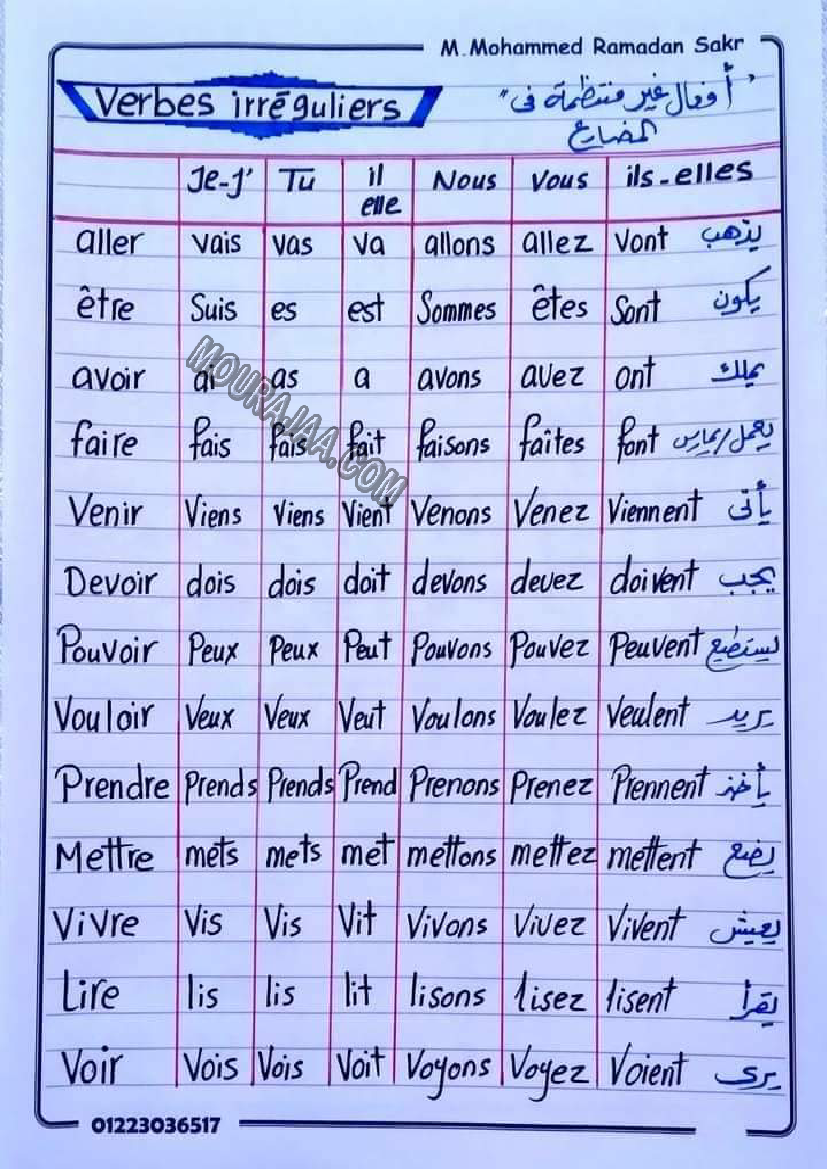 M.Mohammed Ramadan Sakr
Verbes irréguliers "أفعال غير منتظمة فى
المضارع"
Je-J' Tu il elle Nous Vous ils-elles
aller vais vas va allons allez vont يذهب
être Suis es est Sommes êtes Sont يكون
avoir ai as a avons avez ont يملك
faire fais fais fait faisons faîtes font يعمل/يمارس
Venir Viens Viens Vient Venons Venez Viennent يأتى
Devoir dois dois doit devons devez doivent يجب
Pouvoir Peux Peux Peut Pouvons Pouvez Peuvent يستطيع
Vouloir Veux Veux Veut Voulons Voulez Veulent يريد
Prendre Prends Prends Prend Prenons Prenez Prennent يأخذ
Mettre mets mets met mettons mettez mettent يضع
Vivre Vis Vis Vit Vivons Vivez Vivent يعيش
Lire lis lis lit lisons lisez lisent يقرأ
Voir Vois Vois Voit Voyons Voyez Voient يرى
01223036517
MOURAJAA.COM